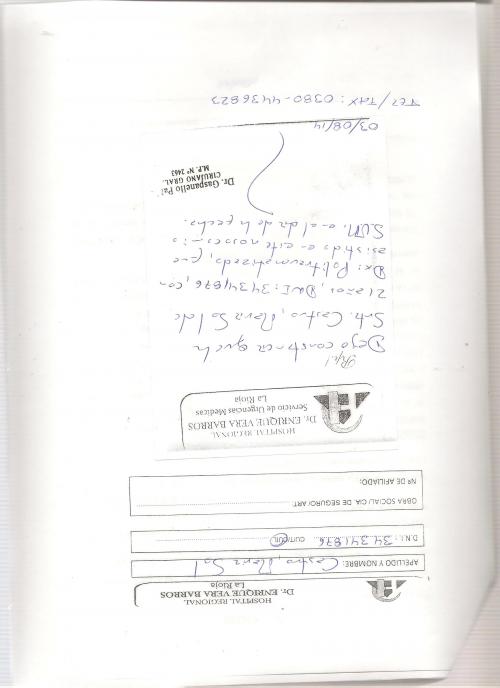 HOSPITAL REGIONAL
Dr. ENRIQUE VERA BARROS
La Rioja
APELLIDO Y NOMBRE: Castro, Maria Sol
D.N.I.: 34341876 CUIT/CUIL
OBRA SOCIAL/ CIA. DE SEGURO/ ART:
Nº DE AFILIADO:
HOSPITAL REGIONAL
Dr. ENRIQUE VERA BARROS
Servicio de Urgencias Medicas
La Rioja
Rp/
Dejo constancia que la
Srta. Castro, Maria Sol de
21 años, DNI: 34341876, con
Dx: Politraumatizada, fue
asistida en este nosocomio
S.U.M. en el dia de la fecha.
Dr. Gaspanello
CIRUJANO GRAL.
M.P. Nº 2463
03/08/14
TEL/FAX: 0380-4436823